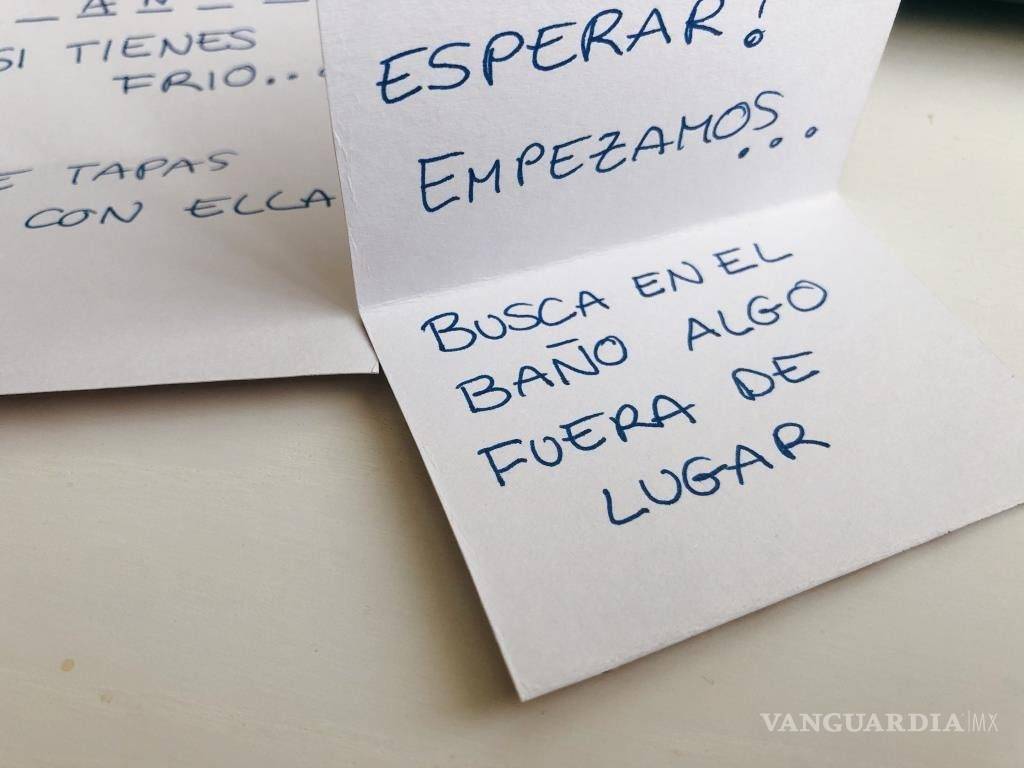 _ A N _ _
SI TIENES
FRIO...
E TAPAS
CON ELLA
ESPERAR!
EMPEZAMOS...
BUSCA EN EL
BAÑO ALGO
FUERA DE
LUGAR
VANGUARDIA|MX